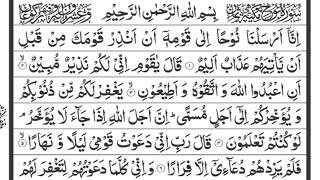 بِسْمِ اللّٰهِ الرَّحْمٰنِ الرَّحِيْمِ
اِنَّاۤ اَرْسَلْنَا نُوْحًا اِلٰى قَوْمِهٖۤ اَنْ اَنْذِرْ قَوْمَكَ مِنْ قَبْلِ
اَنْ يَّاْتِيَهُمْ عَذَابٌ اَلِيْمٌ ۝۱ قَالَ يٰقَوْمِ اِنِّيْ لَكُمْ نَذِيْرٌ مُّبِيْنٌ ۝۲
اَنِ اعْبُدُوا اللّٰهَ وَاتَّقُوْهُ وَاَطِيْعُوْنِ ۝۳ يَغْفِرْ لَكُمْ مِّنْ ذُنُوْبِكُمْ
وَيُؤَخِّرْكُمْ اِلٰۤى اَجَلٍ مُّسَمًّى ؕ اِنَّ اَجَلَ اللّٰهِ اِذَا جَآءَ لَا يُؤَخَّرُ ۘ
لَوْ كُنْتُمْ تَعْلَمُوْنَ ۝۴ قَالَ رَبِّ اِنِّيْ دَعَوْتُ قَوْمِيْ لَيْلًا وَّنَهَارًا ۝۵
فَلَمْ يَزِدْهُمْ دُعَآءِيْۤ اِلَّا فِرَارًا ۝۶ وَاِنِّيْ كُلَّمَا دَعَوْتُهُمْ لِتَغْفِرَ لَهُمْ